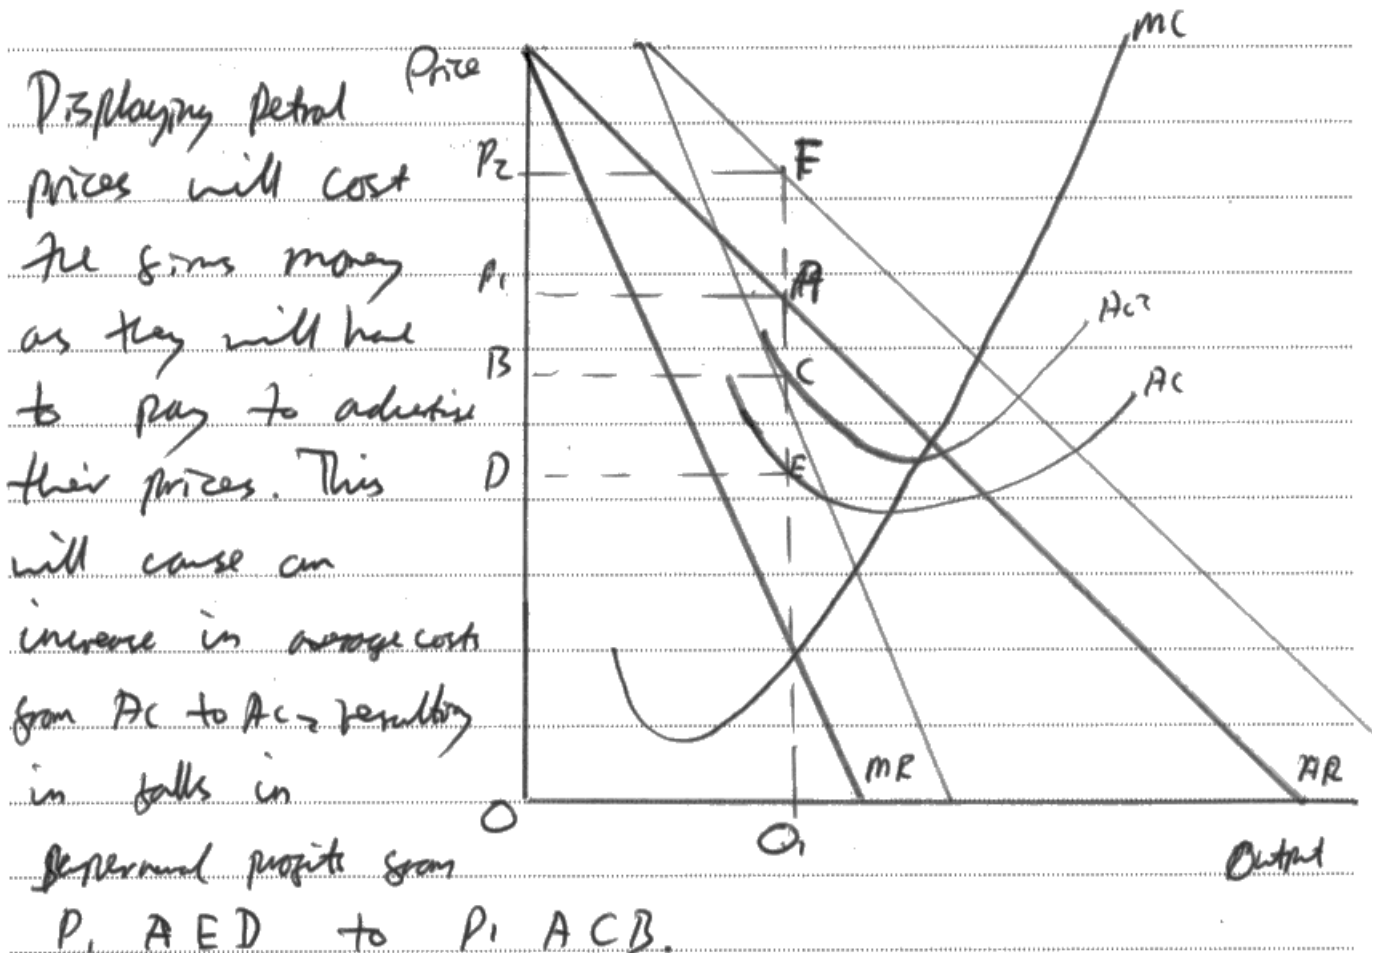 Displaying petrol
prices will cost
the firms money
as they will have
to pay to advertise
their prices. This
will cause an
increase in average costs
from AC to AC2 resulting
in falls in
supernormal profits from
P1 AED to P1 ACB.
Price
MC
P2
E
P1
A
AC2
B
C
AC
D
E
MR
AR
O
Q1
Output